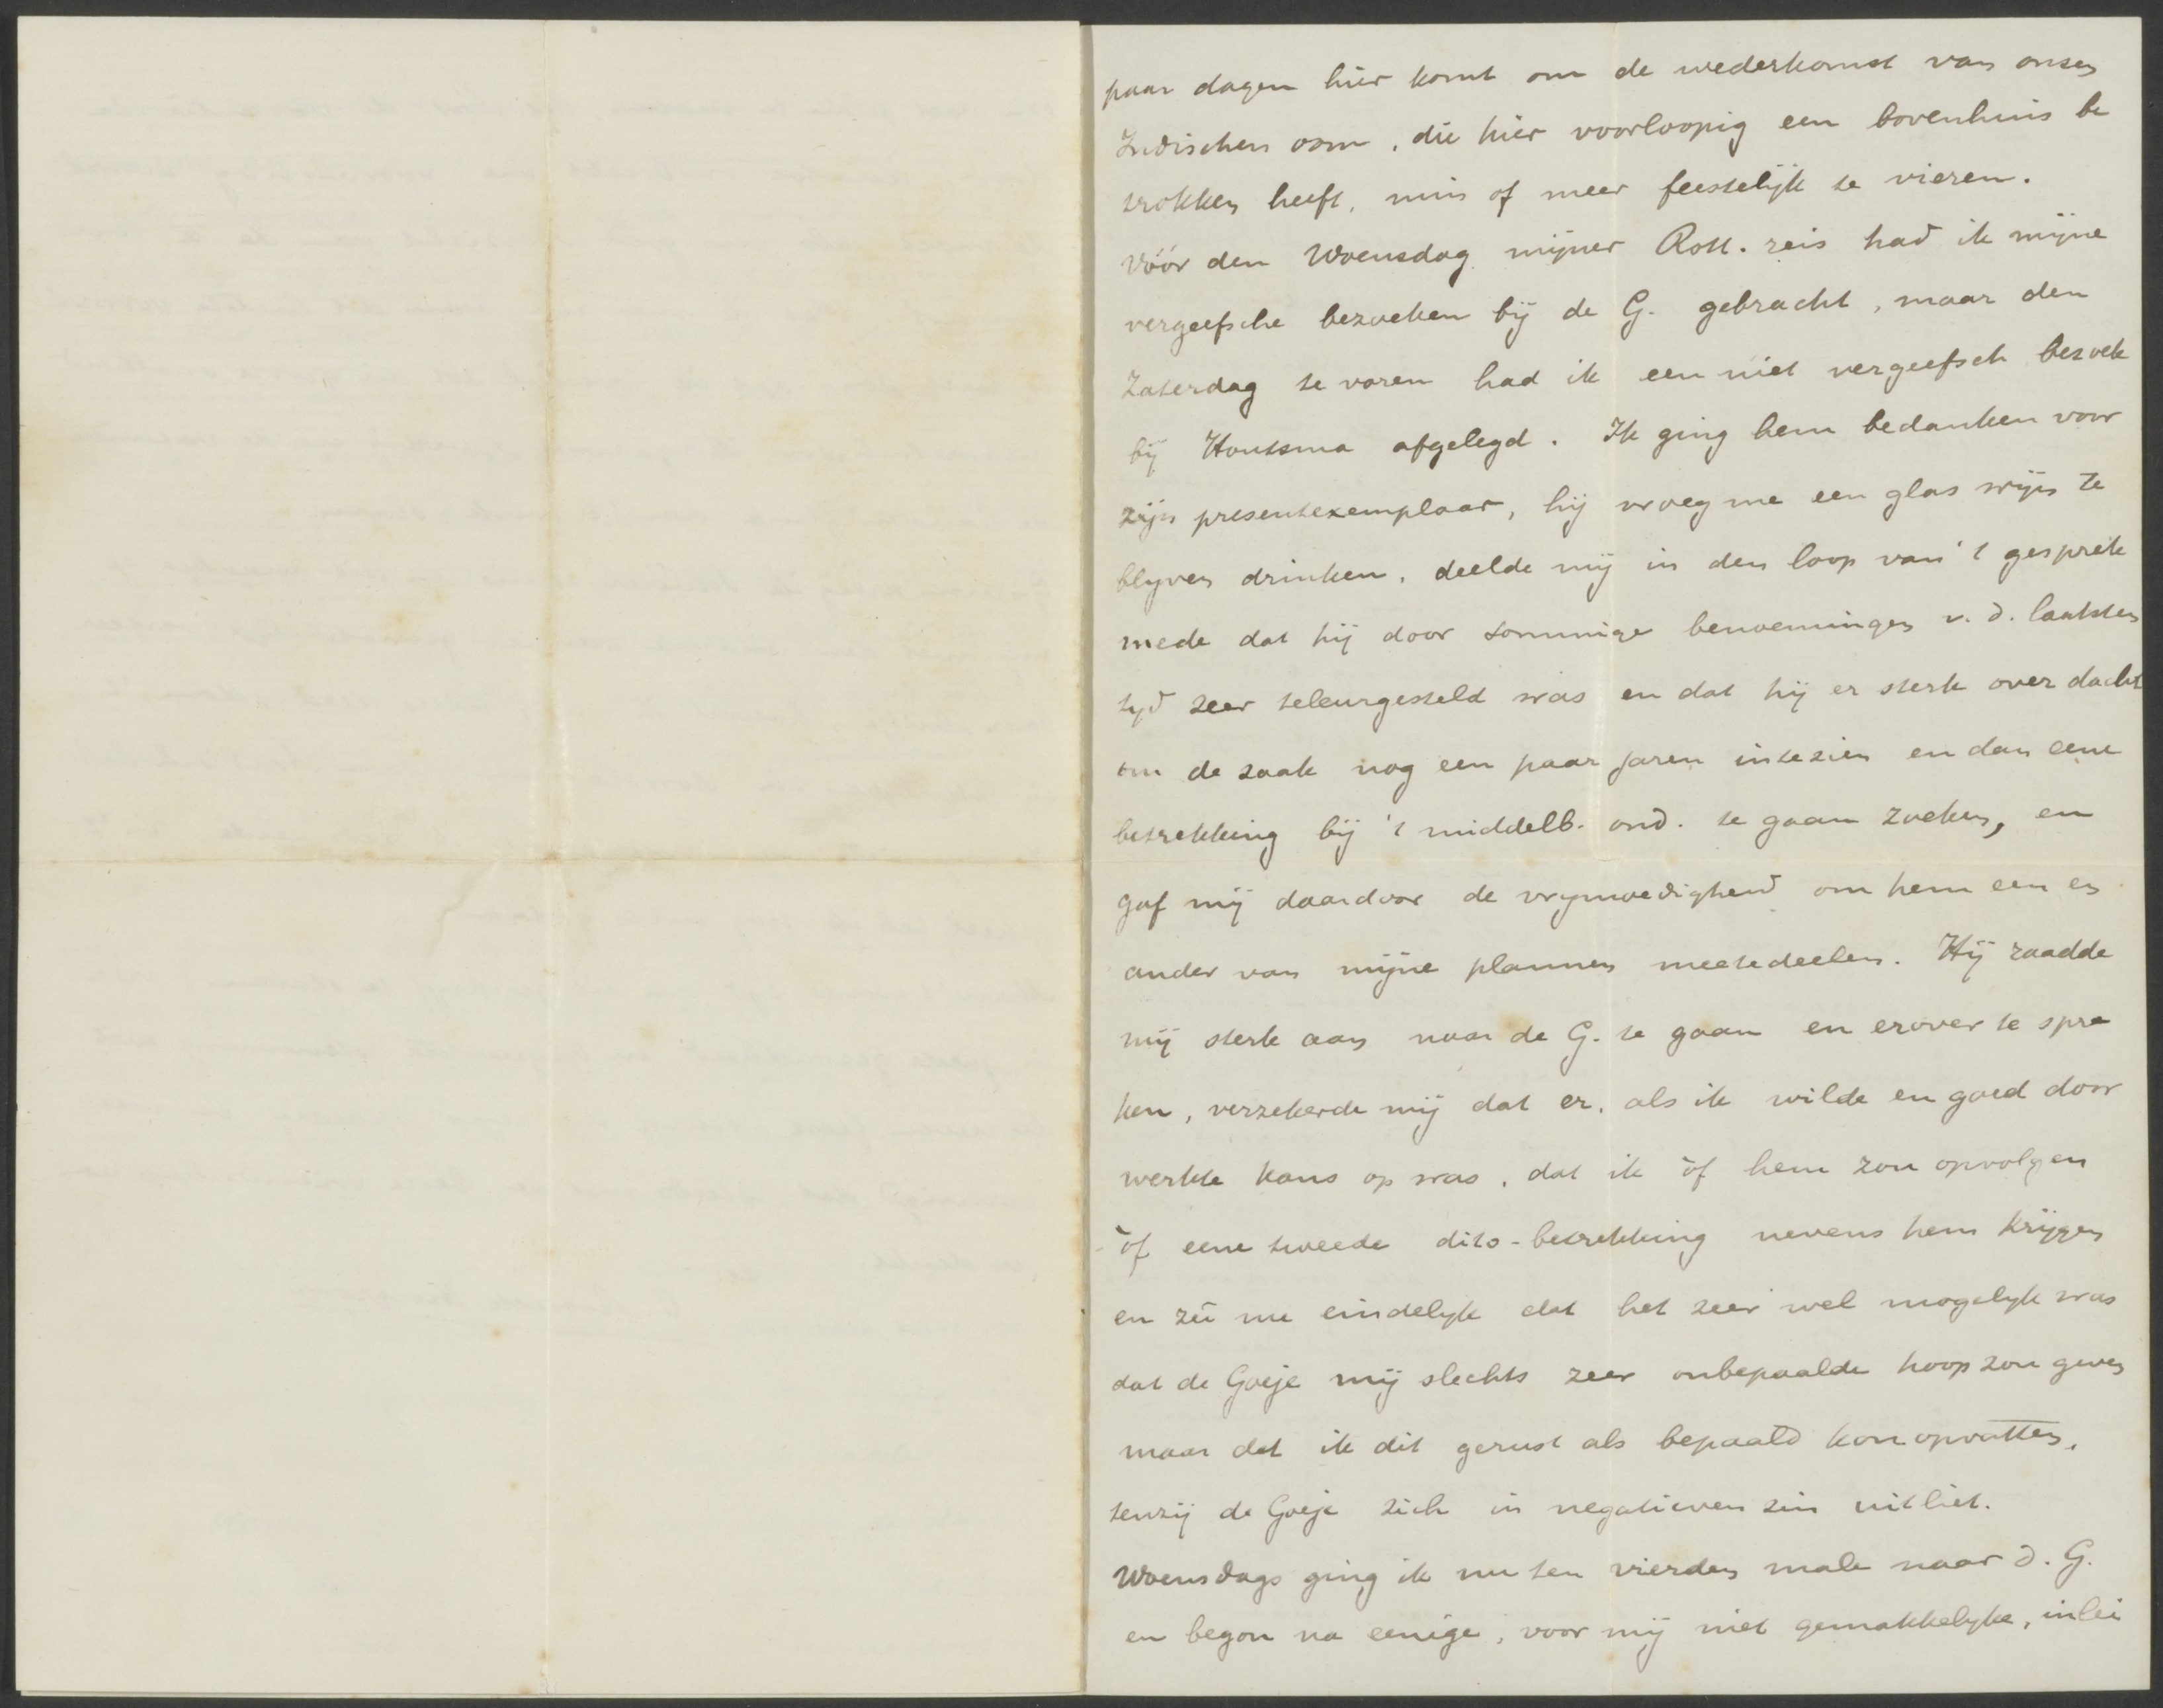 paar dagen hier komt om de wederkomst van onzen
Indischen oom, die hier voorloopig een bovenhuis be
trokken heeft, min of meer feestelijk te vieren.
Vóór den Woensdag mijner Rott. reis had ik mijne
vergeefsche bezoeken bij de G. gebracht, maar den
Zaterdag te voren had ik een niet vergeefsch bezoek
bij Houtsma afgelegd. Ik ging hem bedanken voor
zijn presentexemplaar, hij vroeg me een glas wijn te
blyven drinken, deelde mij in den loop van 't gesprek
mede dat hij door sommige benoemingen v. d. laatsten
tyd zeer teleurgesteld was en dat hij er sterk over dacht
om de zaak nog een paar jaren intezien en dan eene
betrekking bij 't middelb. ond. te gaan zoeken, en
gaf mij daardoor de vrymoedigheid om hem een en
ander van mijne plannen meetedeelen. Hij raadde
mij sterk aan naar de G. te gaan en erover te spre
ken, verzekerde mij dat er, als ik wilde en goed door
werkte kans op was, dat ik òf hem zou opvolgen
òf eene tweede dito-betrekking nevens hem krijgen
en zei me eindelyk dat het zeer wel mogelyk was
dat de Goeje mij slechts zeer onbepaalde hoop zou geven
maar dat ik dit gerust als bepaald kon opvatten,
tenzij de Goeje zich in negatieven zin uitliet.
Woensdags ging ik nu ten vierden male naar d. G.
en begon na eenige, voor mij niet gemakkelyke, inlei